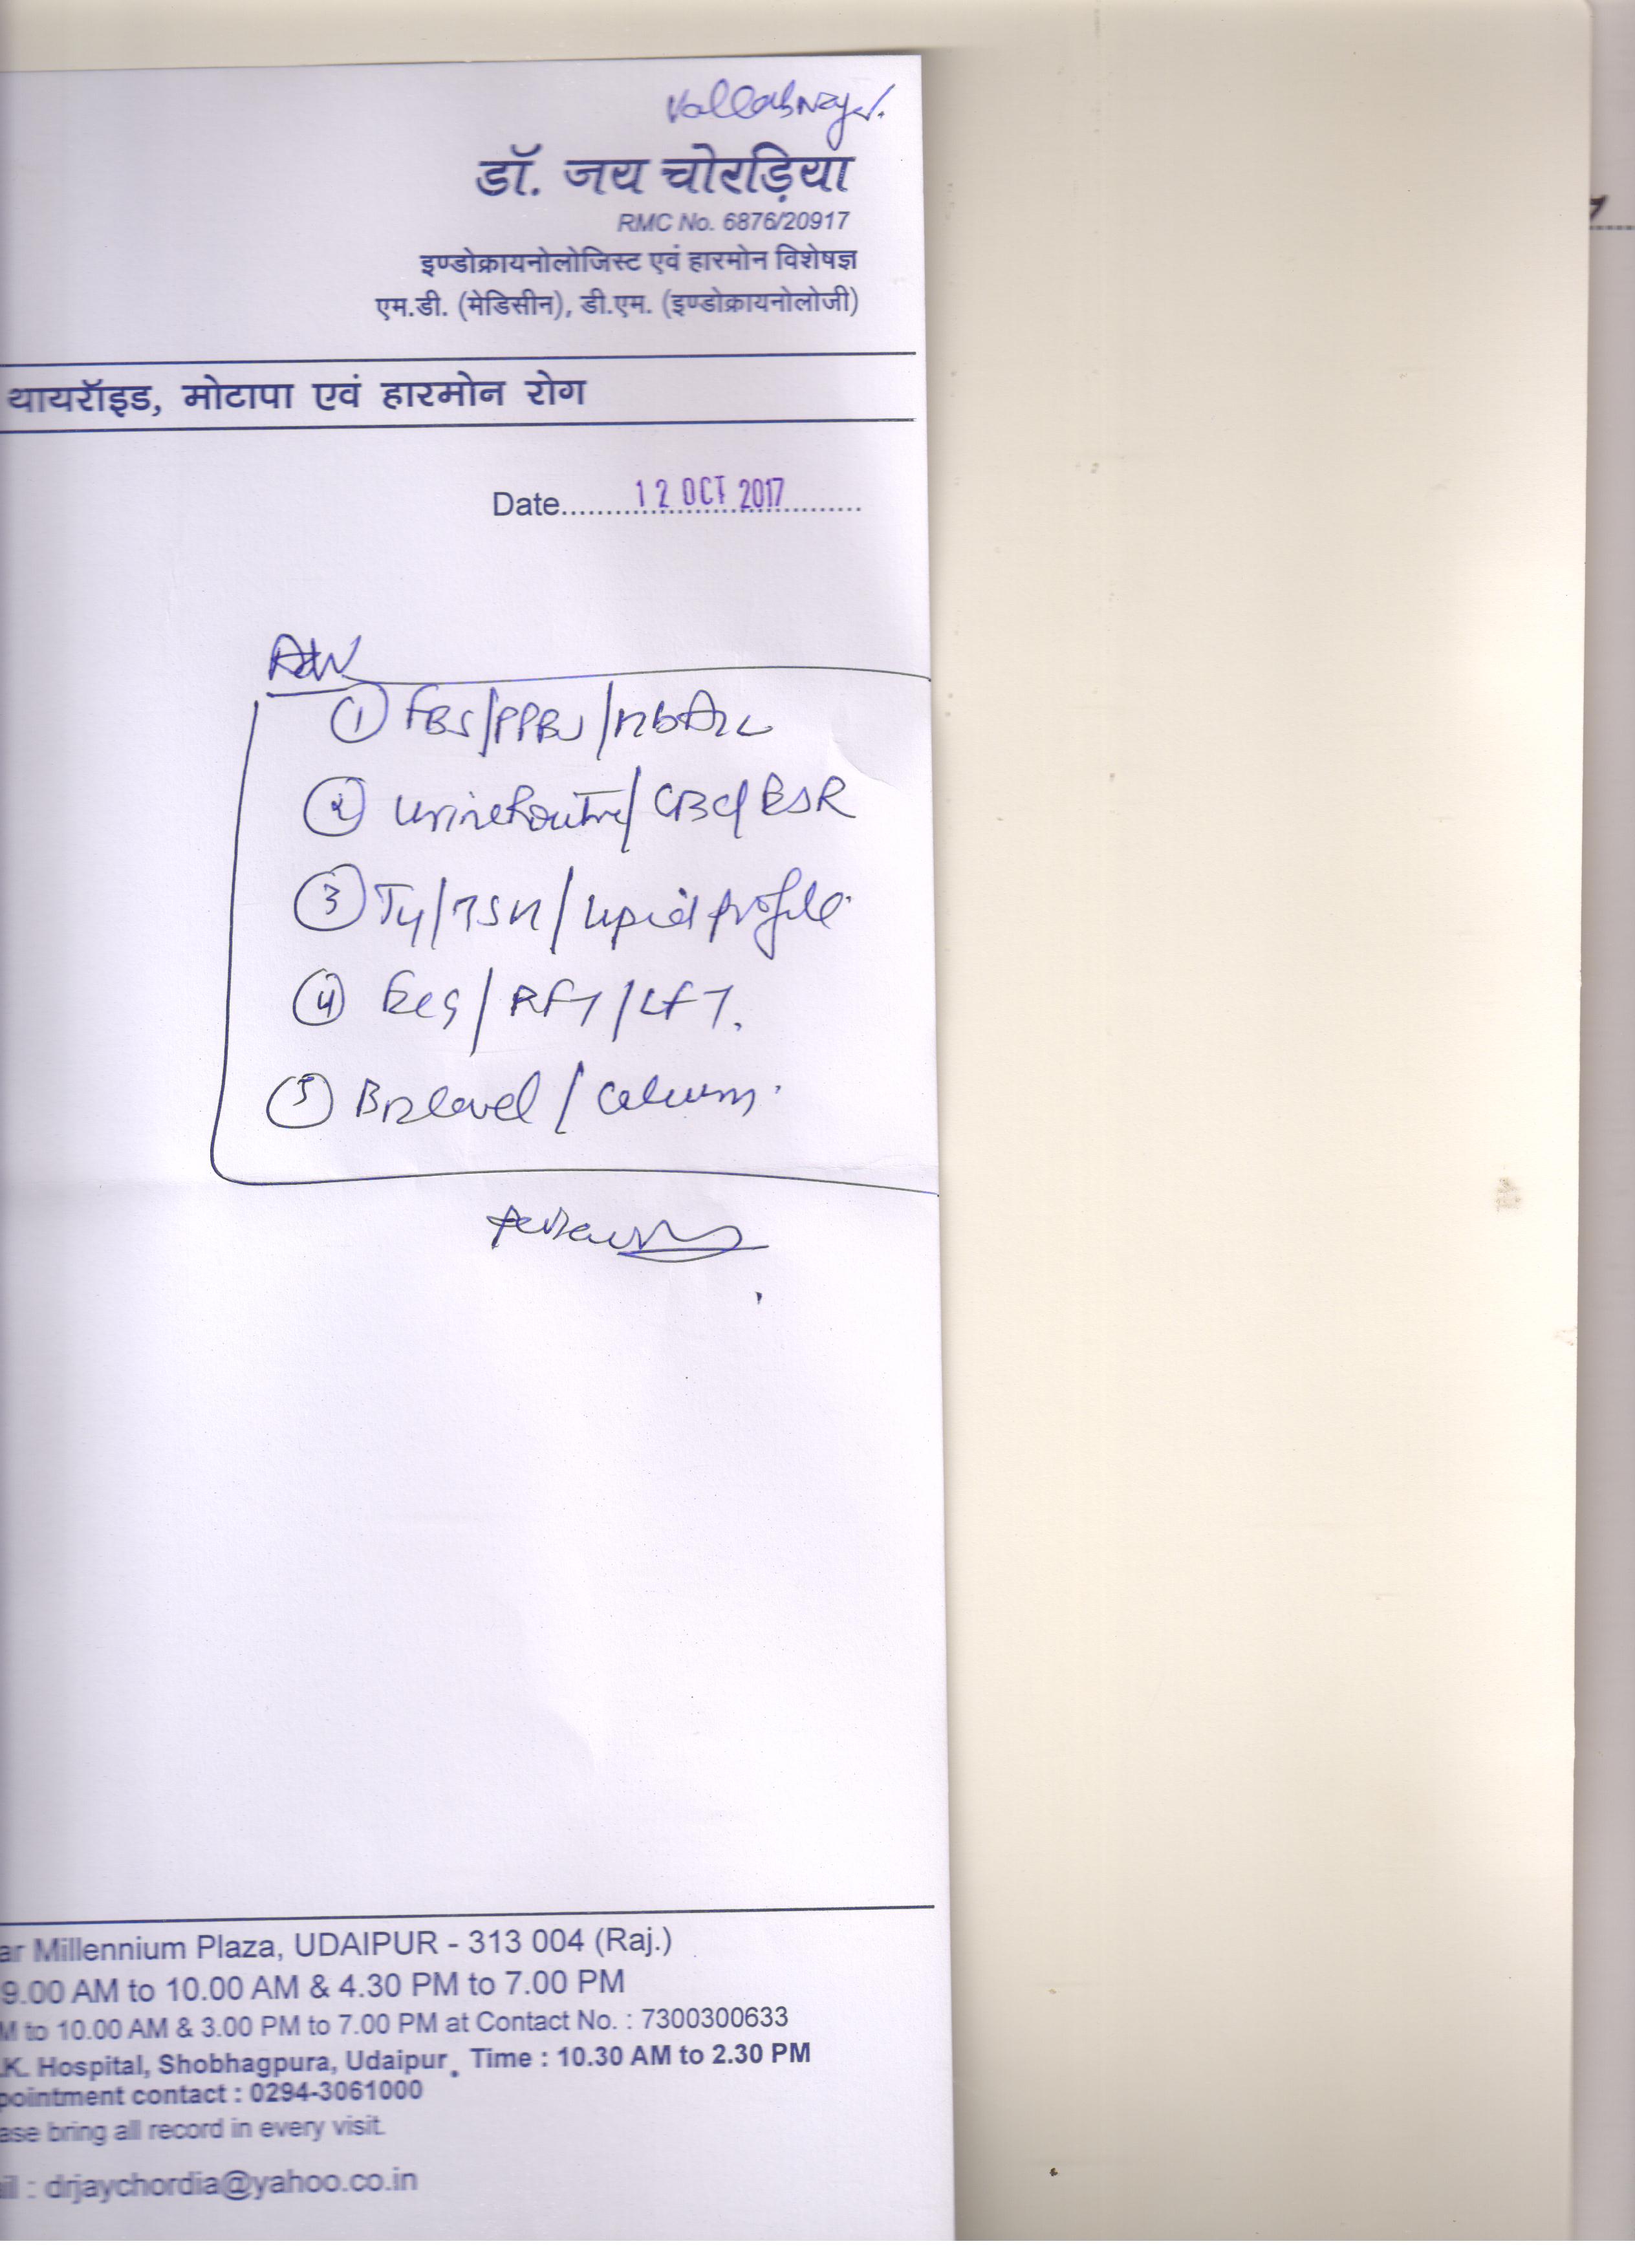 Vallabhnagar.
डॉ. जय चोरड़िया
RMC No. 6876/20917
इण्डोक्रायनोलोजिस्ट एवं हारमोन विशेषज्ञ
एम.डी. (मेडिसीन), डी.एम. (इण्डोक्रायनोलोजी)
थायरॉइड, मोटापा एवं हारमोन रोग
Date.......12 OCT 2017.......
Adv
① FBS/PPBS/HbA1c
② Urine Routine/CBC/ESR
③ T4/TSH/Lipid profile.
④ ECG/RFT/LFT.
⑤ B12 level/Calcium.
ar Millennium Plaza, UDAIPUR - 313 004 (Raj.)
9.00 AM to 10.00 AM & 4.30 PM to 7.00 PM
M to 10.00 AM & 3.00 PM to 7.00 PM at Contact No. : 7300300633
.K. Hospital, Shobhagpura, Udaipur. Time : 10.30 AM to 2.30 PM
pointment contact : 0294-3061000
ase bring all record in every visit.
il : drjaychordia@yahoo.co.in